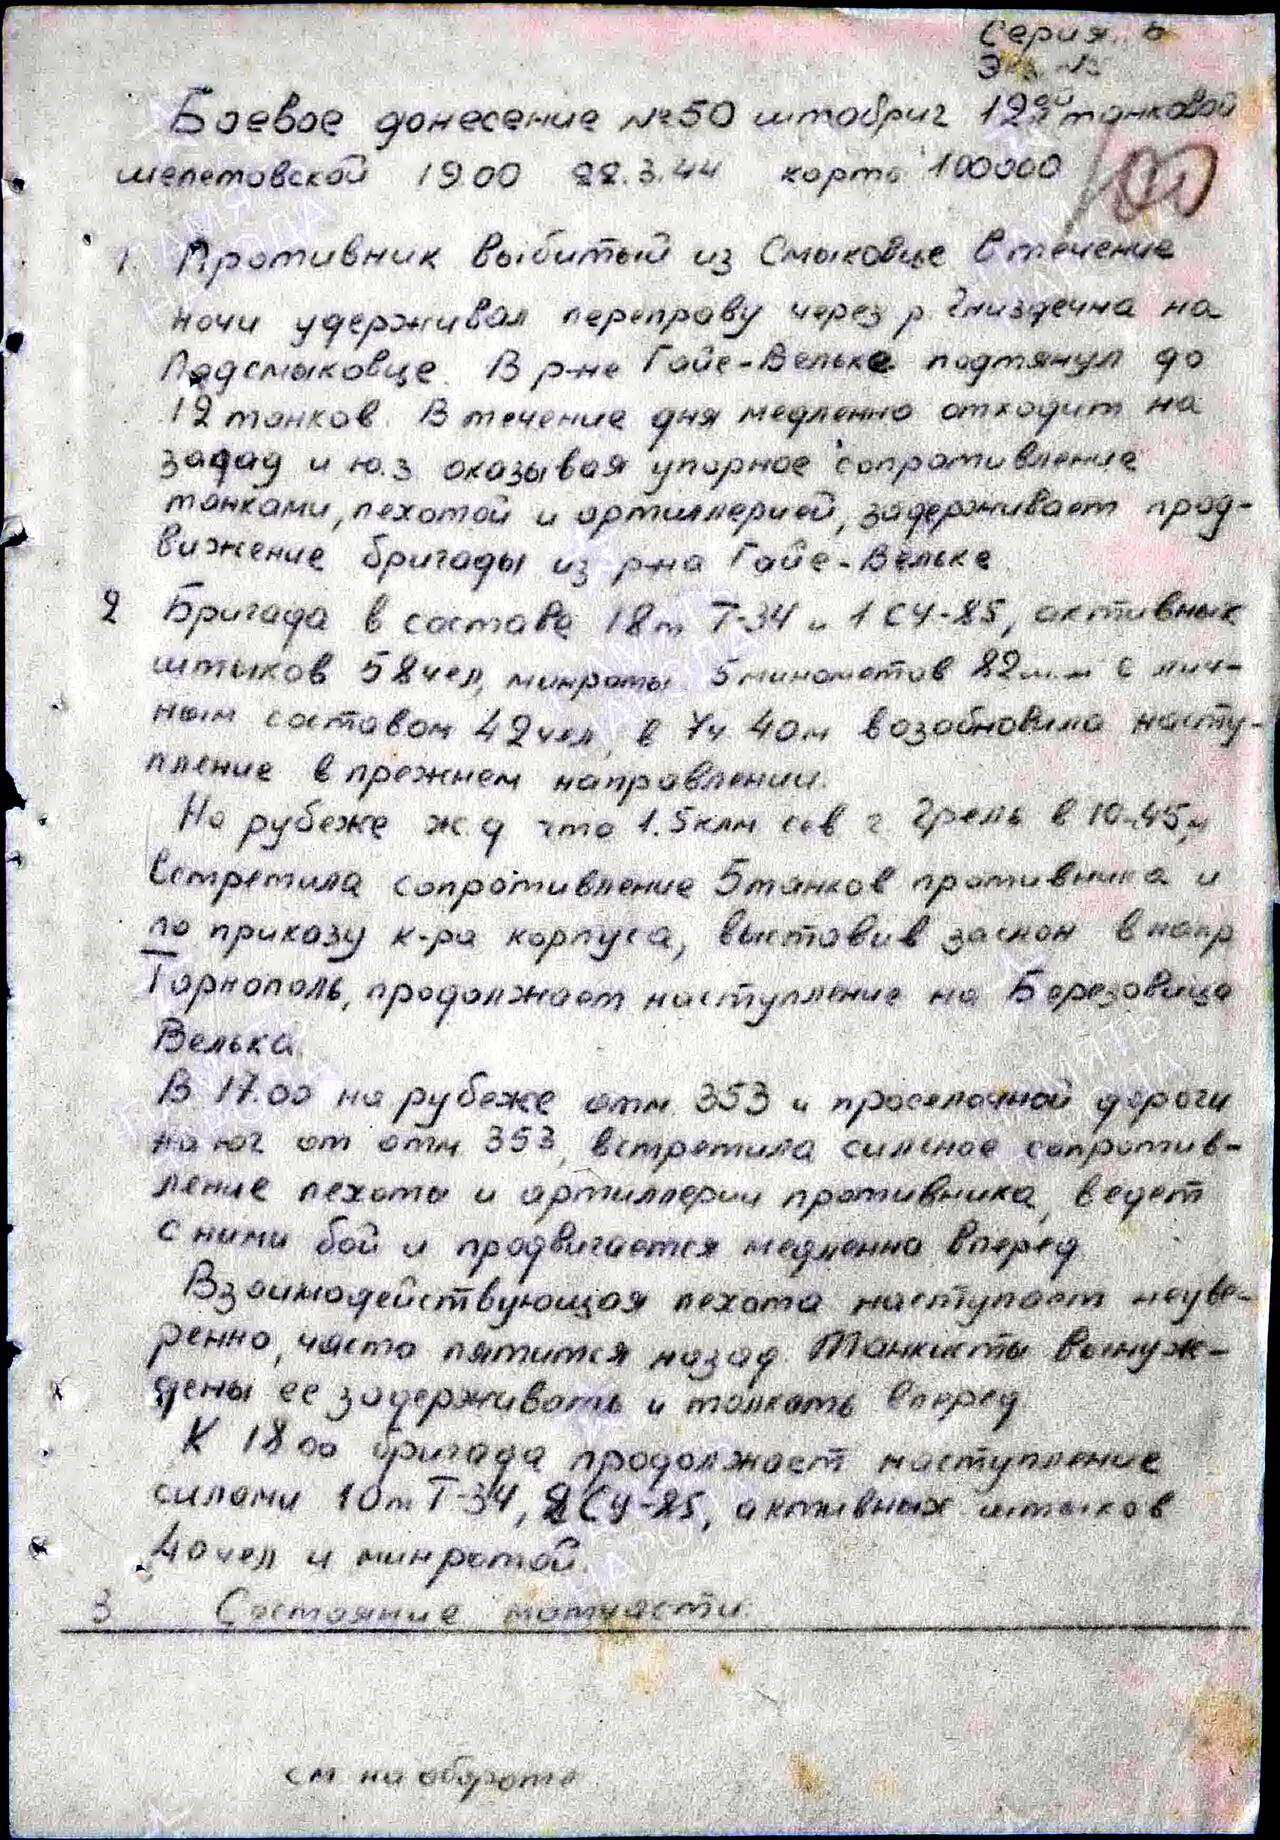 Серия Б
Экз. №
Боевое донесение №50 штабриг 12ой танковой
шепетовской 19 00 22.3.44 карта 100000
1. Противник выбитый из Смыковце в течение
ночи удерживал переправу через р. Гниздечна на
Подсмыковце. В р-не Гайе-Вельке подтянул до
12 танков. В течение дня медленно отходит на
запад и ю.з оказывая упорное сопротивление
танками, пехотой и артиллерией, задерживает прод-
вижение бригады из р-на Гайе-Вельке
2 Бригада в составе 18т Т-34 и 1 СУ-85, активных
штыков 58чел, минроты 5минометов 82м.м с лич-
ным составом 42чел, в 7ч 40м возобновила насту-
пление в прежнем направлении.
На рубеже ж.д что 1.5клм сев г. в 10ч45м
встретила сопротивление 5танков противника и
по приказу к-ра корпуса, выставив заслон в напр
Тарнополь, продолжает наступление на Березовица
Велька.
В 17.00 на рубеже отм. 353 и проселочной дороги
на юг от отм. 353, встретила сильное сопротив-
ление пехоты и артиллерии противника, ведет
с ними бой и продвигается медленно вперед.
Взаимодействующая пехота наступает неуве-
ренно, часто пятится назад. Танкисты вынуж-
дены ее задерживать и толкать вперед
К 18 00 бригада продолжает наступление
силами 10т Т-34, 2 СУ-85, активных штыков
40чел и минротой.
3 Состояние матчасти:
см на обороте
100